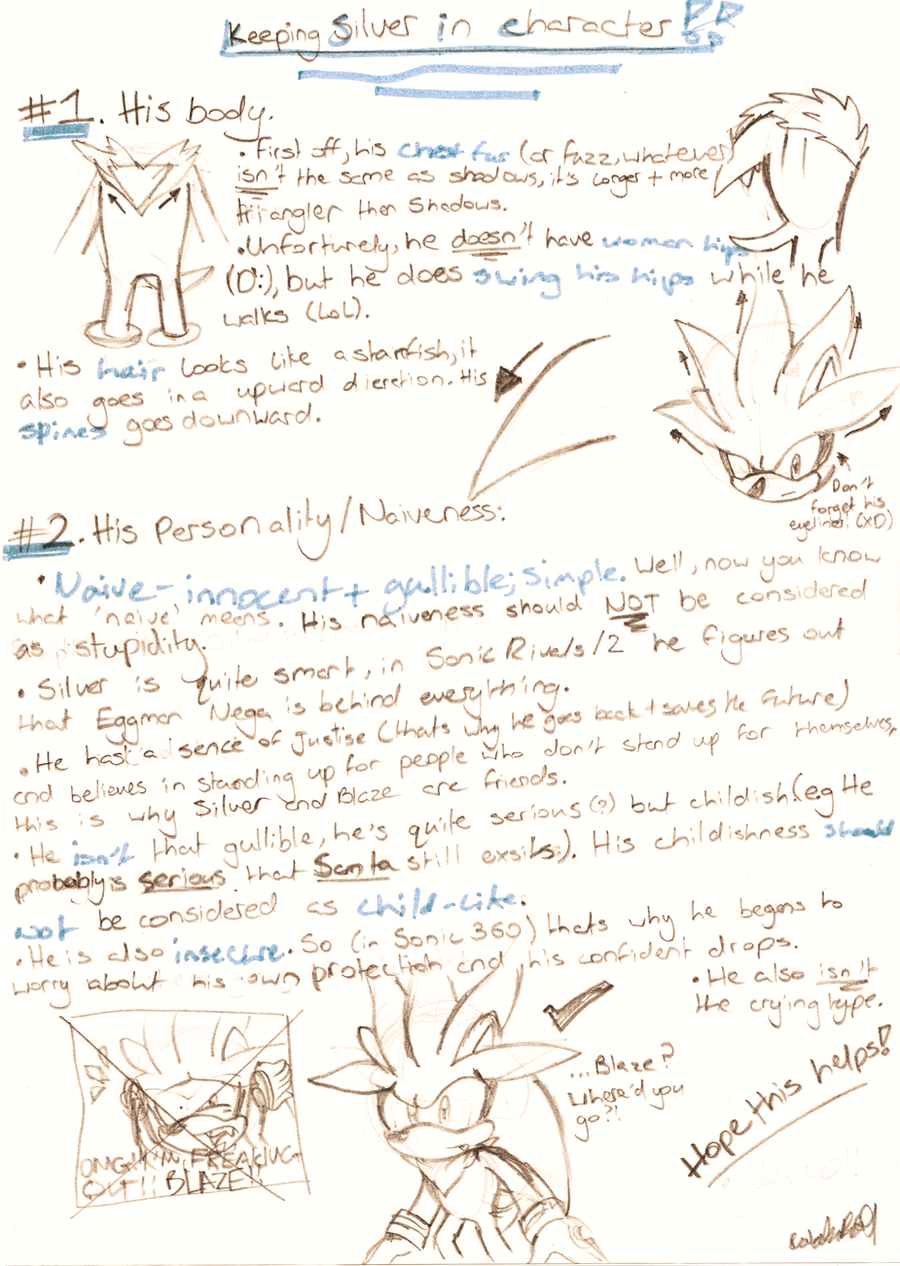 Keeping Silver in character!!
#1. His body.
• First off, his chest fur (or fuzz, whatever)
isn't the same as shadows, it's longer + more
triangler then Shadows.
• Unfortunely, he doesn't have woman hips
(D:), but he does swing his hips while he
walks (LoL).
• His hair looks like a starfish, it
also goes in a upward dieretion. His
spines goes downward.
Don't
forget his
eyeliner. (XD)
#2. His Personality/Naiveness:
• Naive- innocent + gullible; simple. Well, now you know
what 'naive' means. His naiveness should NOT be considered
as stupidity.
• Silver is quite smart, in Sonic Rivals/2 he figures out
that Eggman Nega is behind everything.
• He has a sence of justise (thats why he goes back + saves the future)
and believes in standing up for people who don't stand up for themselves,
this is why Silver and Blaze are friends.
• He isn't that gullible, he's quite serious (?) but childish. (e.g He
probably is serious that Santa still exsits.). His childishness should
not be considered as child-like.
• He is also insecure. So (in Sonic 360) thats why he begins to
worry about his own protection and his confident drops.
• He also isn't
the crying type.
OMG!! I'M FREAKING
OUT!! BLAZE!!
...Blaze?
Where'd you
go?!
Hope this helps!